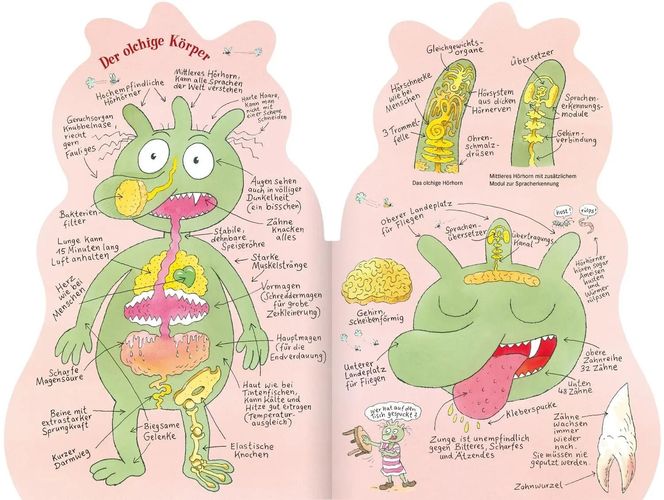 Der olchige Körper
Hochempfindliche
Hörhörner
Mittleres Hörhorn,
Kann alle Sprachen
der Welt verstehen
Harte Haare,
Kann man
nicht mit
einer Schere
Schneiden
Geruchsorgan
Knubbelnase,
riecht
gern
Fauliges
Bakterien-
filter
Lunge kann
15 Minuten lang
Luft anhalten
Augen sehen
auch in völliger
Dunkelheit
(ein bisschen)
Zähne
Knacken
alles
Stabile,
dehnbare
Speiseröhre
Starke
Muskelstränge
Herz
wie bei
Menschen
Vormagen
(Schreddermagen
für grobe
Zerkleinerung)
Hauptmagen
(für die
Endverdauung)
Scharfe
Magensäure
Haut wie bei
Tintenfischen,
Kann Kälte und
Hitze gut ertragen
(Temperatur-
ausgleich)
Beine mit
extrastarker
Sprungkraft
Biegsame
Gelenke
Kurzer
Darmweg
Elastische
Knochen
Gleichgewichts-
organe
Hörschnecke
wie bei
Menschen
Hörsystem
aus dicken
Hörnerven
3 Trommel-
felle
Ohren-
schmalz-
drüsen
Das olchige Hörhorn
Übersetzer
Sprachen-
erkennungs-
module
Gehirn-
verbindung
Mittleres Hörhorn mit zusätzlichem
Modul zur Spracherkennung
Oberer Landeplatz
für Fliegen
Sprachen-
übersetzer
Übertragungs-
Kanal
hust!
rülps!
Hörhörner
hören sogar
Ameisen
husten
und
Würmer
rülpsen
Gehirn,
scheibenförmig
Unterer
Landeplatz
für Fliegen
obere
Zahnreihe
32 Zähne
Unten
48 Zähne
Kleberspucke
Wer hat auf den
Tisch gespuckt?
Zunge ist unempfindlich
gegen Bitteres, Scharfes
und Ätzendes
Zähne
wachsen
immer
wieder
nach.
Sie müssen nicht
geputzt werden.
Zahnwurzel